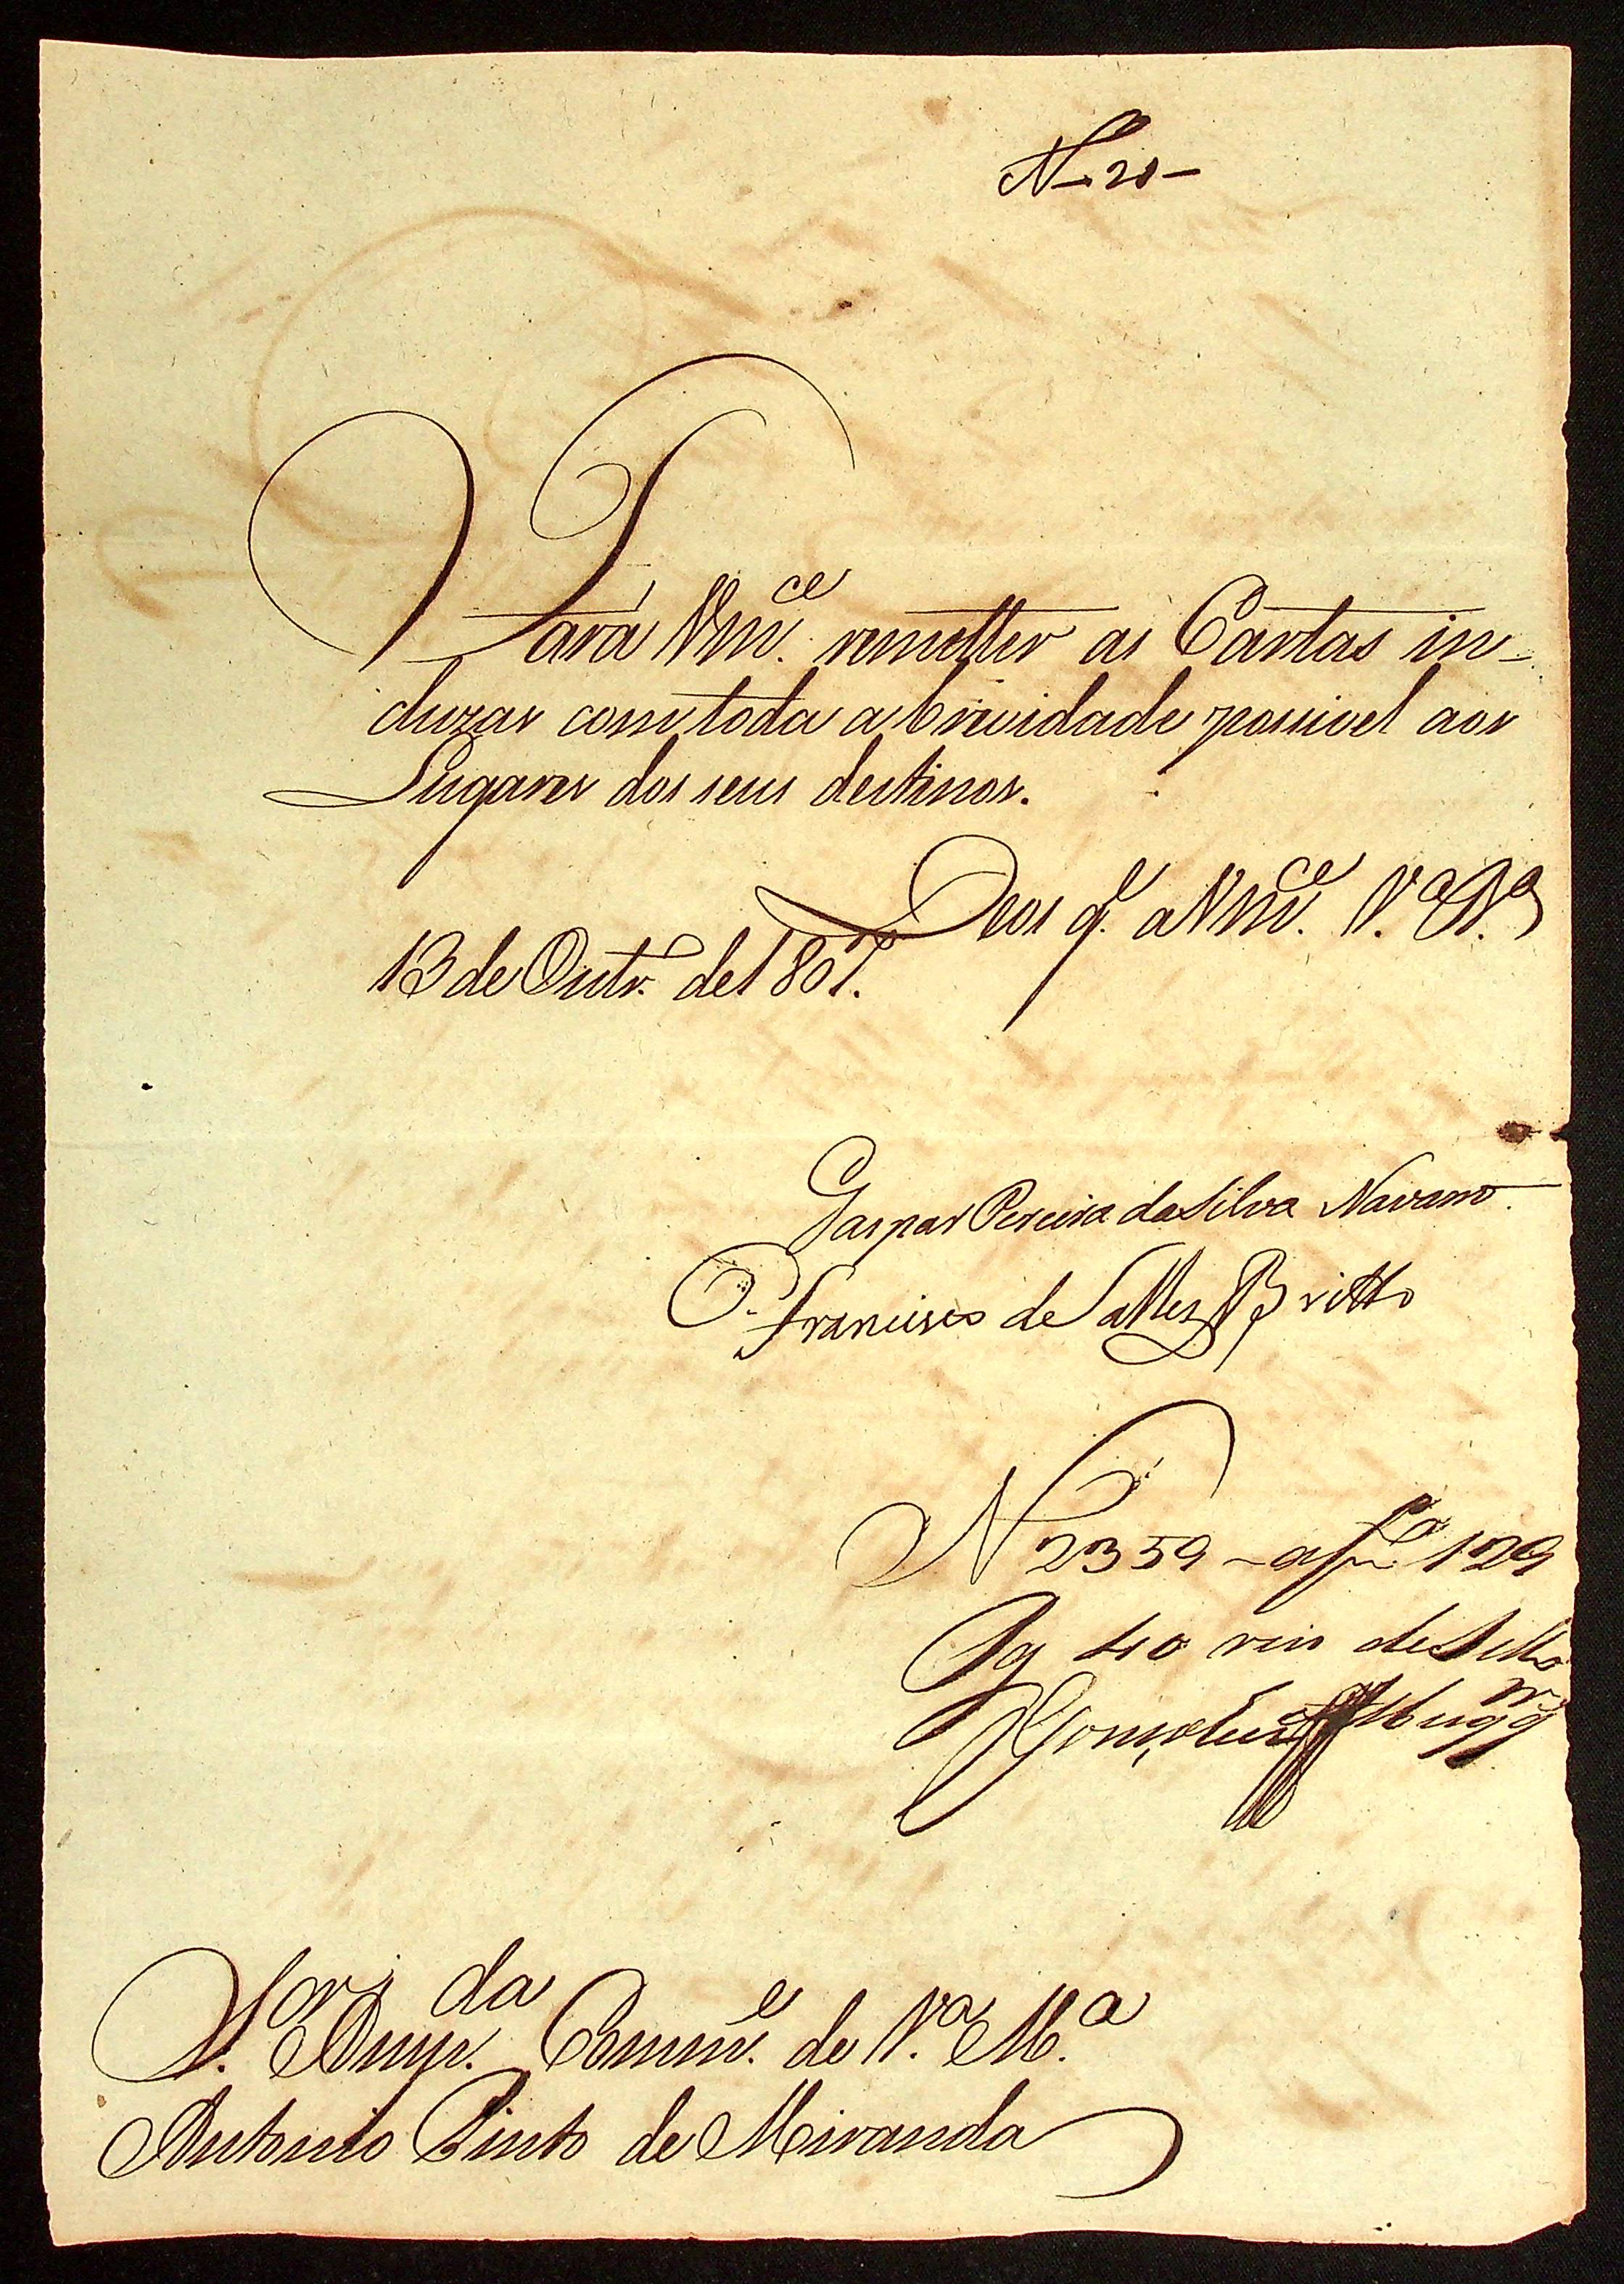 N–20–
Fará Vm.ce remetter as Cartas in-
cluzas com toda a brevidade possivel aos
Lugares dos seus destinos.
Deos g.e a Vm.ce V.a R.a
13 de Outr.o de 1807.
Gaspar Pereira da Silva Navarro.
P. Francisco de Salles Britto
N 2359 – a f 129
Pg 40 reis de Sello
S.or Admin.or da Comm.e de V.a M.a
Antonio Pinto de Miranda